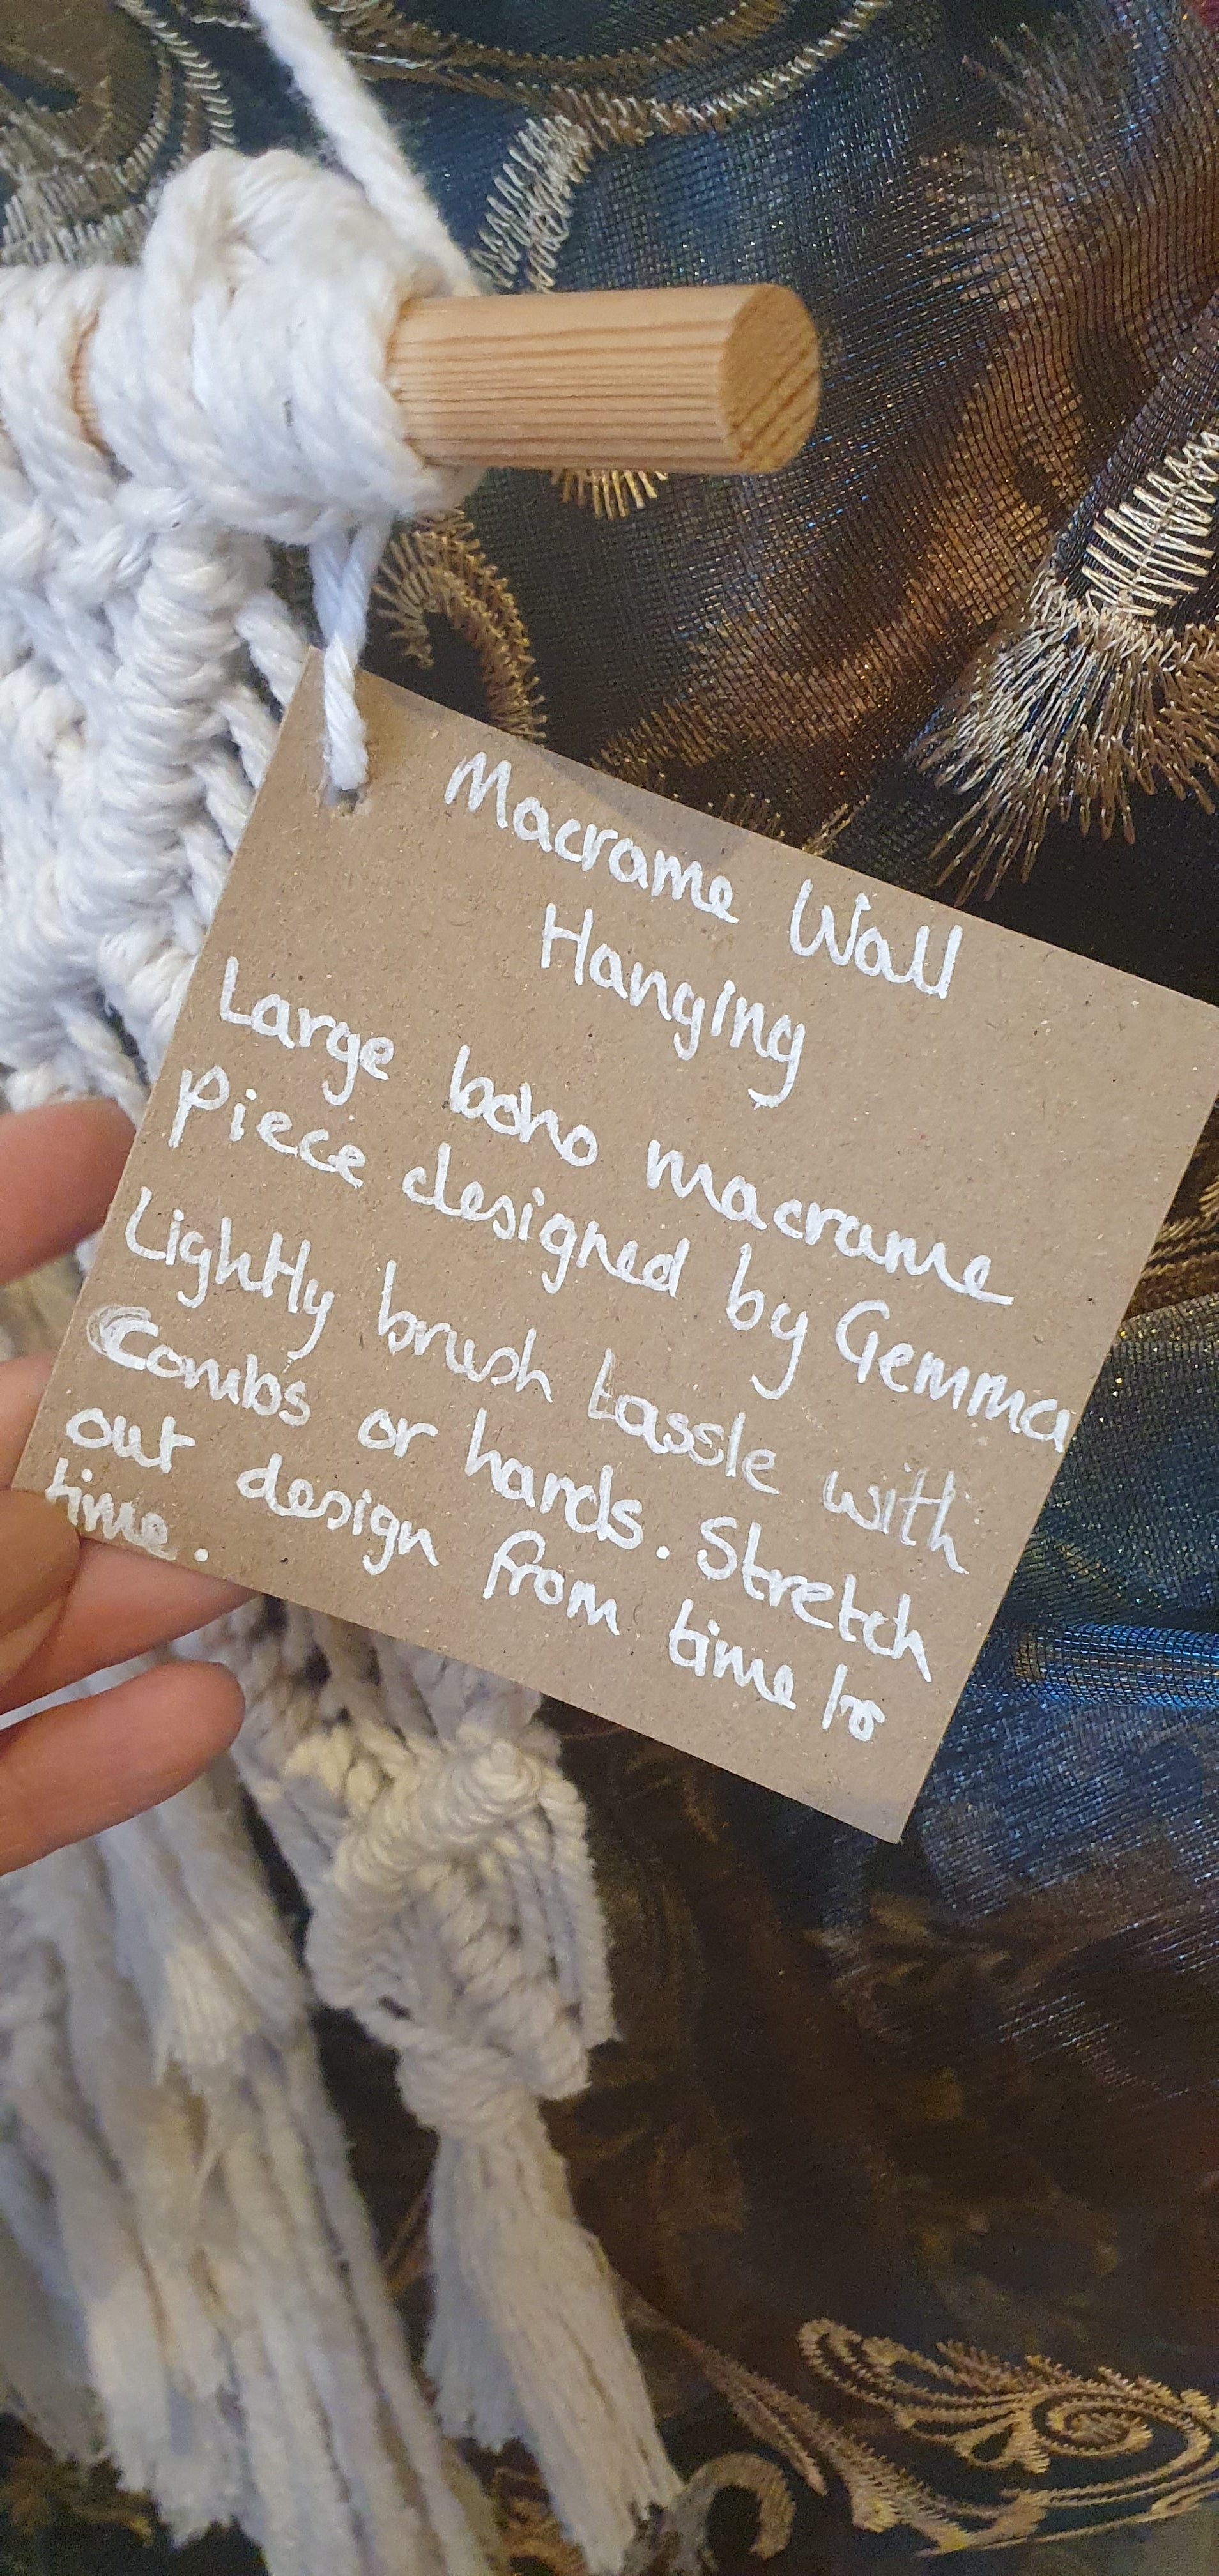 Macrame Wall
Hanging
Large boho macrame
Piece designed by Gemma
Lightly brush tassle with
Combs or hands. Stretch
out design from time to
time.